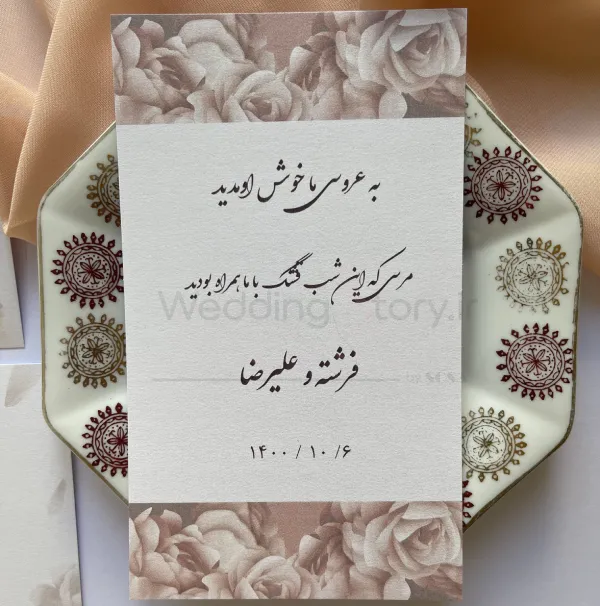 به عروسی ما خوش اومدید
مرسی که این شب قشنگ با ما همراه بودید
Wedding tory.ir
فرشته و علیرضا
۱۴۰۰ / ۱۰ /۶